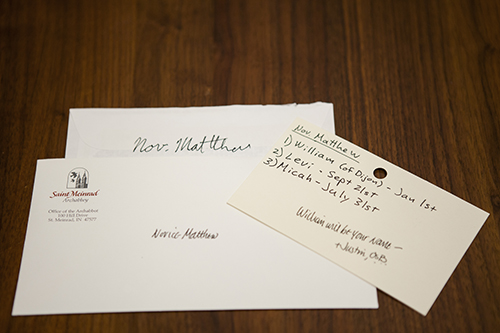 Nov. Matthew
Saint Meinrad
Archabbey
Office of the Archabbot
100 Hill Drive
St. Meinrad, IN 47577
Novice Matthew
Nov. Matthew
1) William (of Dijon) - Jan 1st
2) Levi - Sept 21st
3) Micah - July 31st
William will be your name —
+Justin, OSB